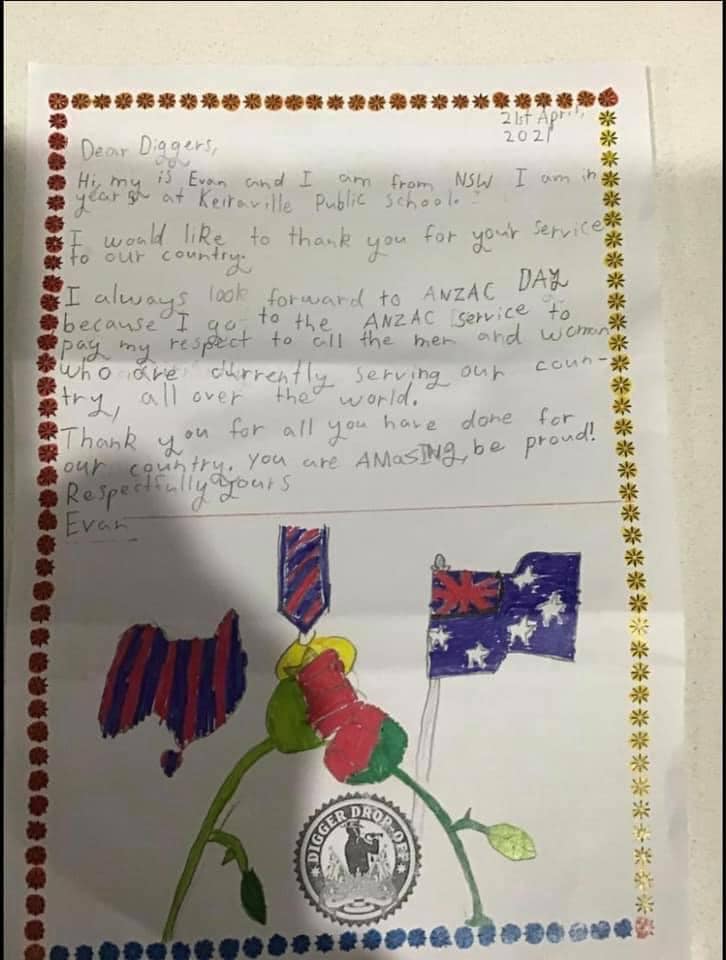 21st April,
2021
Dear Diggers,
Hi, my is Evan and I am from NSW I am in
year 5 at Keiraville Public School.
I would like to thank you for your service
to our country.
I always look forward to ANZAC DAY
because I go to the ANZAC service to
pay my respect to all the men and woman
who are currently serving our coun-
try, all over the world.
Thank you for all you have done for
our country. you are AMaSINg, be proud!
Respectfully yours
Evan
DIGGER DROP-OFF